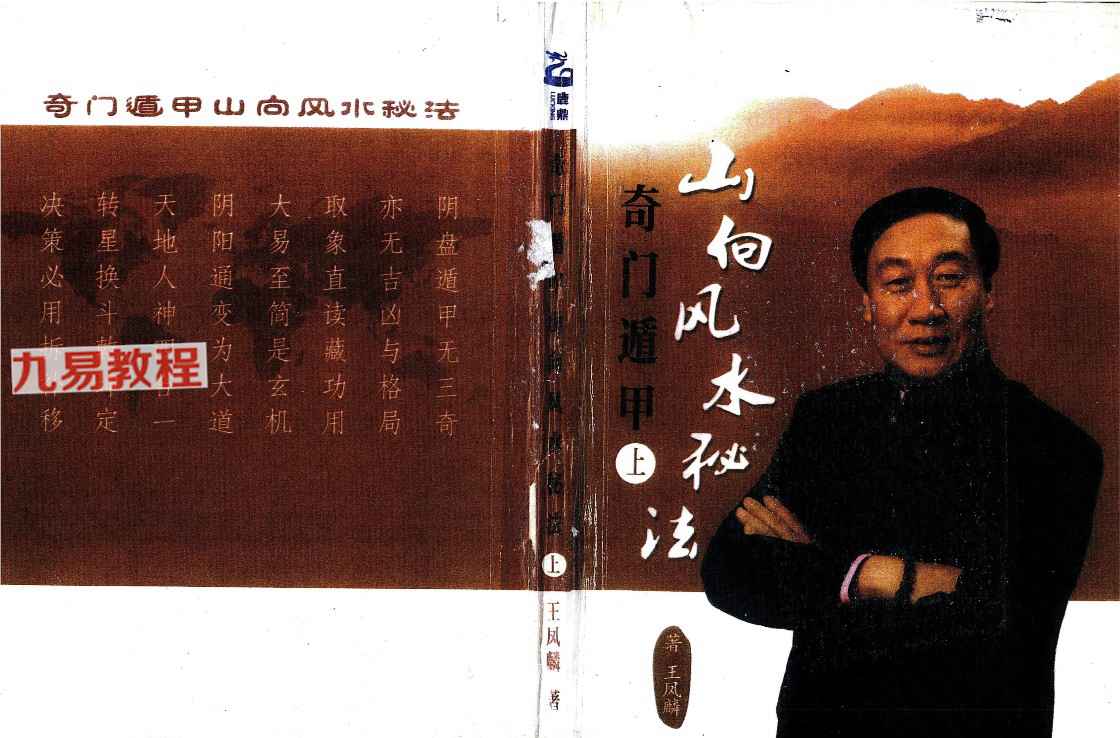 奇门遁甲山向风水秘法
阴盘遁甲无三奇
亦无吉凶与格局
取象直读藏功用
大易至简是玄机
阴阳通变为大道
天地人神一
转星换斗定
决策必用移
九易教程
鹿鼎
上
王凤麟 著
山向风水秘法
奇门遁甲
上
著 王凤麟